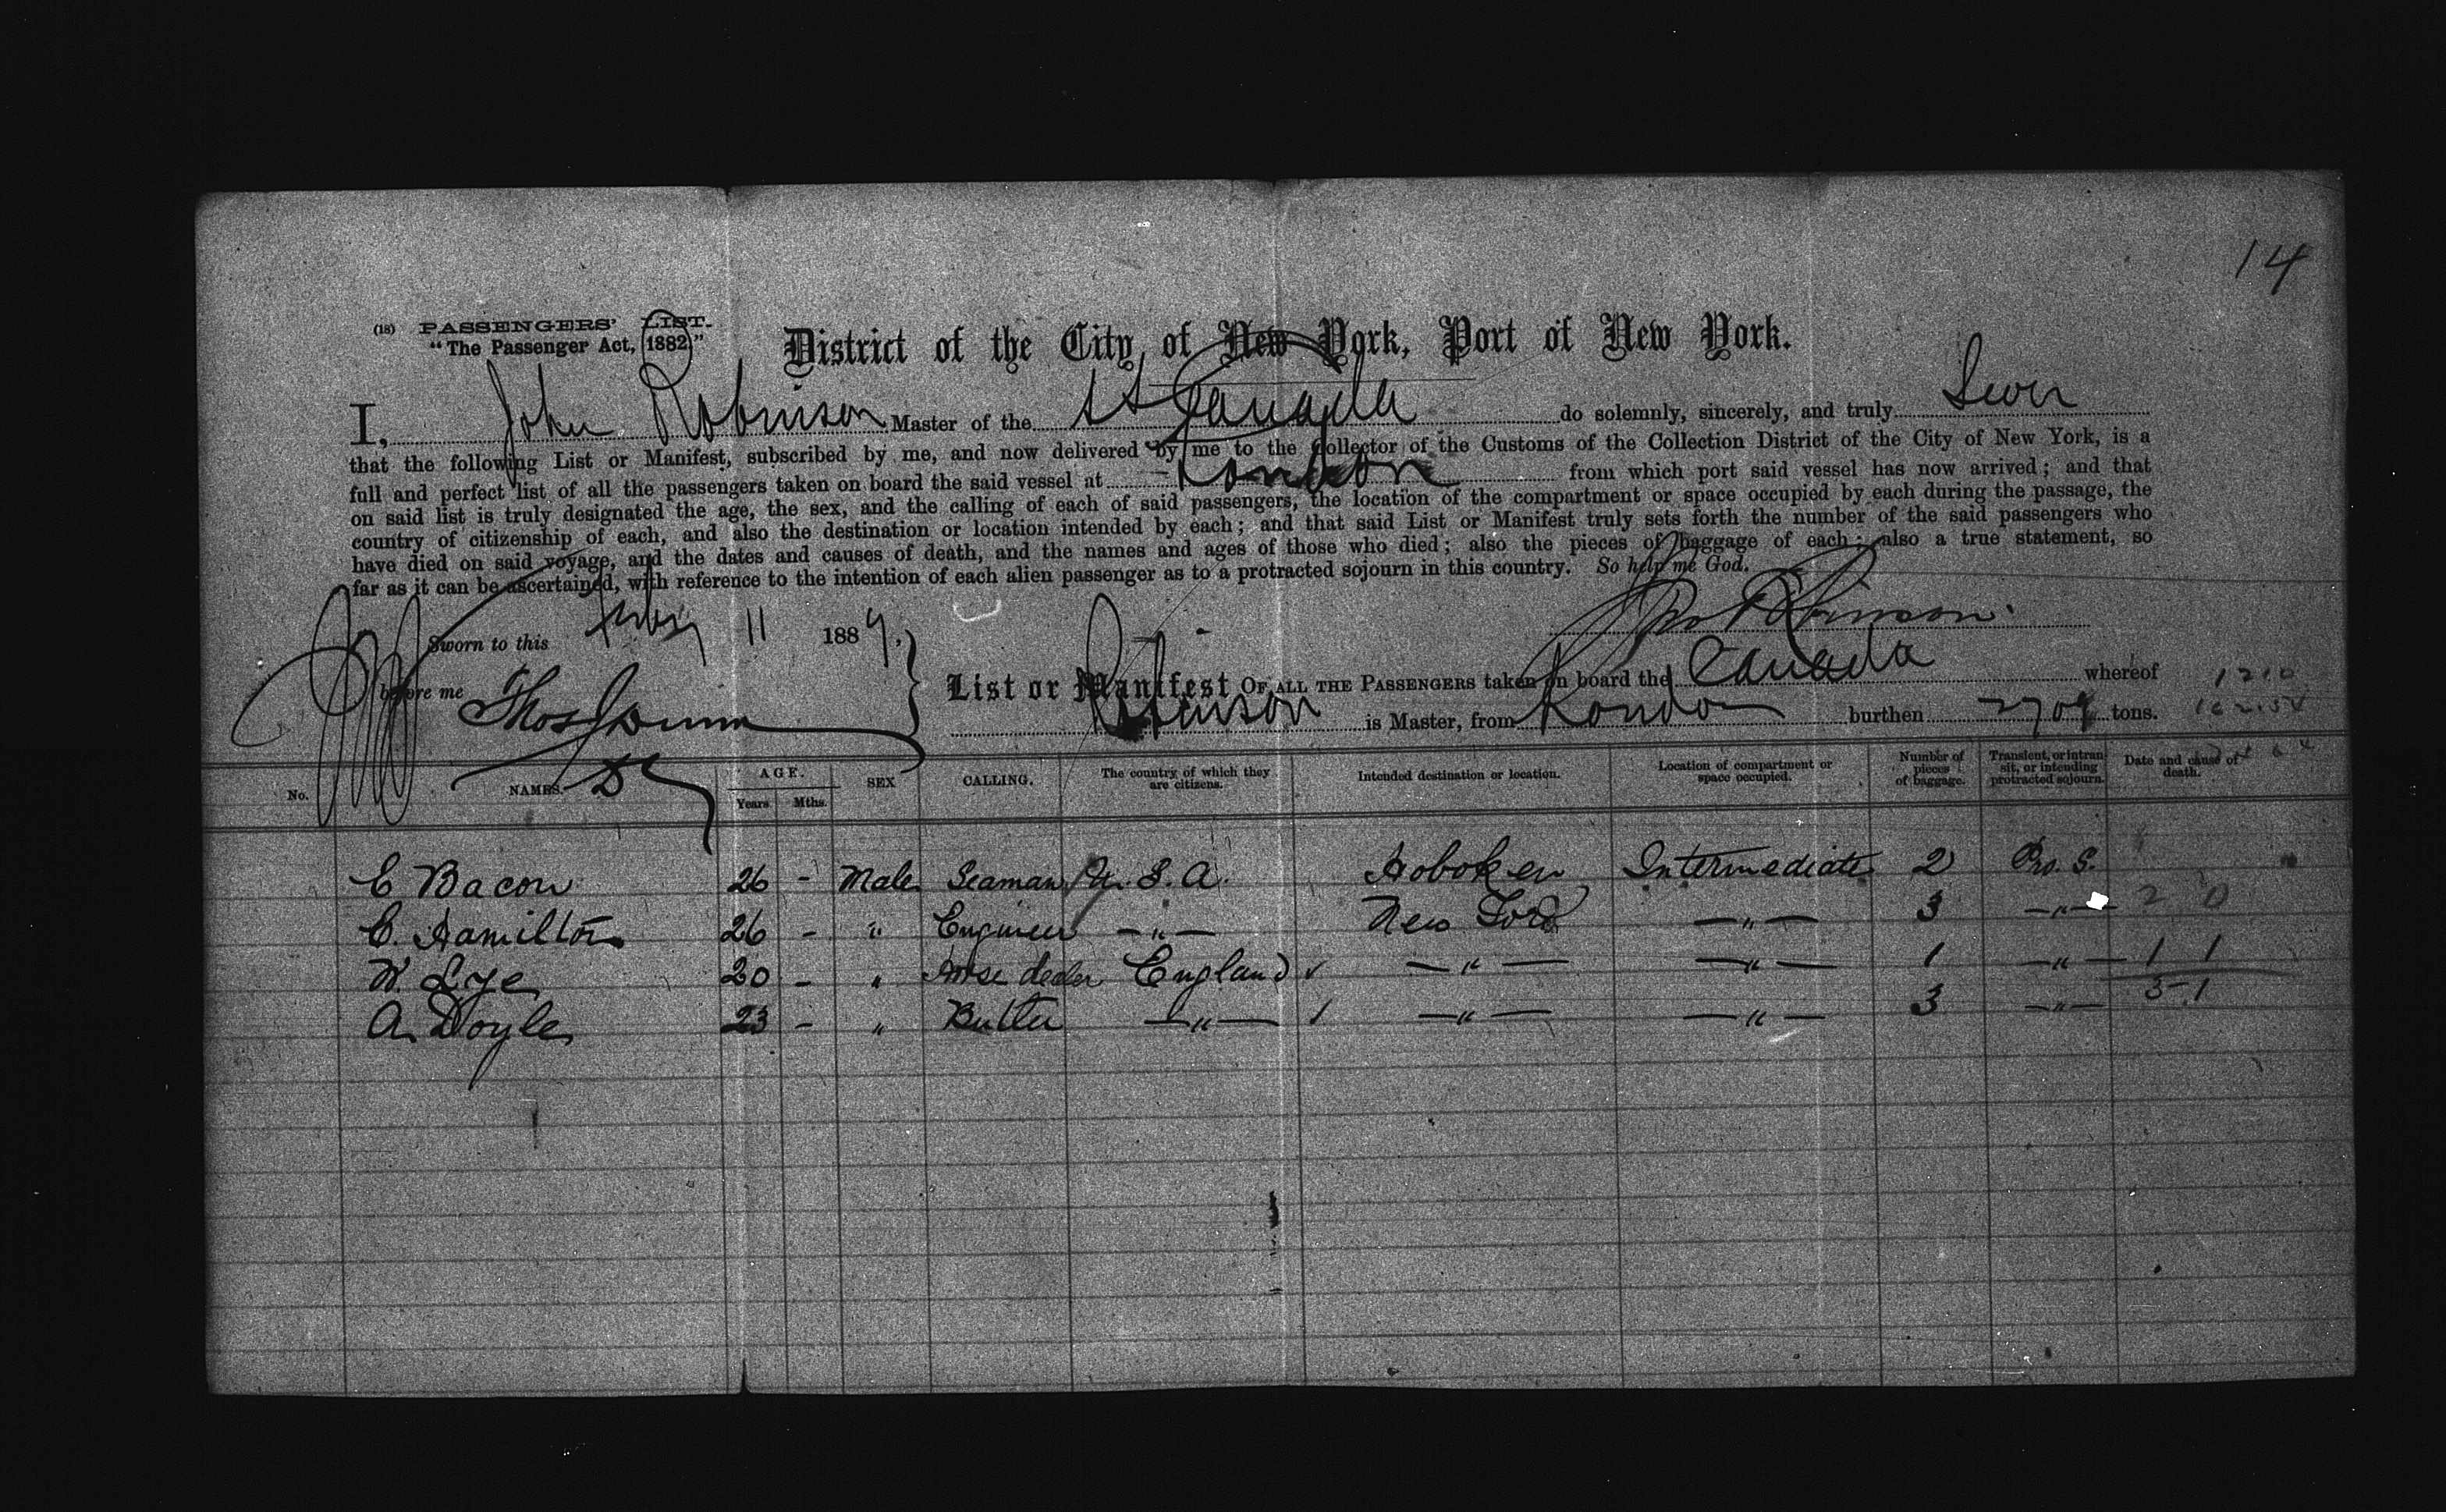 14
(18) PASSENGERS' LIST.
"The Passenger Act, 1882"
District of the City of New York, Port of New York.
I, John Robinson Master of the SS Canada do solemnly, sincerely, and truly Swear
that the following List or Manifest, subscribed by me, and now delivered by me to the Collector of the Customs of the Collection District of the City of New York, is a
full and perfect list of all the passengers taken on board the said vessel at London from which port said vessel has now arrived; and that
on said list is truly designated the age, the sex, and the calling of each of said passengers, the location of the compartment or space occupied by each during the passage, the
country of citizenship of each, and also the destination or location intended by each; and that said List or Manifest truly sets forth the number of the said passengers who
have died on said voyage, and the dates and causes of death, and the names and ages of those who died; also the pieces of baggage of each; also a true statement, so
far as it can be ascertained, with reference to the intention of each alien passenger as to a protracted sojourn in this country. So help me God.
Sworn to this 11 188 Jno Robinson.
before me Thos Dunn
List or Manifest OF ALL THE PASSENGERS taken on board the Canada whereof
Robinson is Master, from London burthen 2709 tons.
No. NAMES. AGE. Years Mths. SEX CALLING. The country of which they are citizens. Intended destination or location. Location of compartment or space occupied. Number of pieces of baggage. Transient, or intransit, or intending protracted sojourn. Date and cause of death.
E Bacon 26 - Male Seaman U.S.A. Hoboken Intermediate 2 Pro. S.
C. Hamilton 26 - " Engineer —"— New York —"— 3 —"— 2 0
W. Lye 20 - " dealer England —"— —"— 1 —"— 1 1
A. Doyle 23 - " Butler —"— —"— —"— 3 —"— 3 1